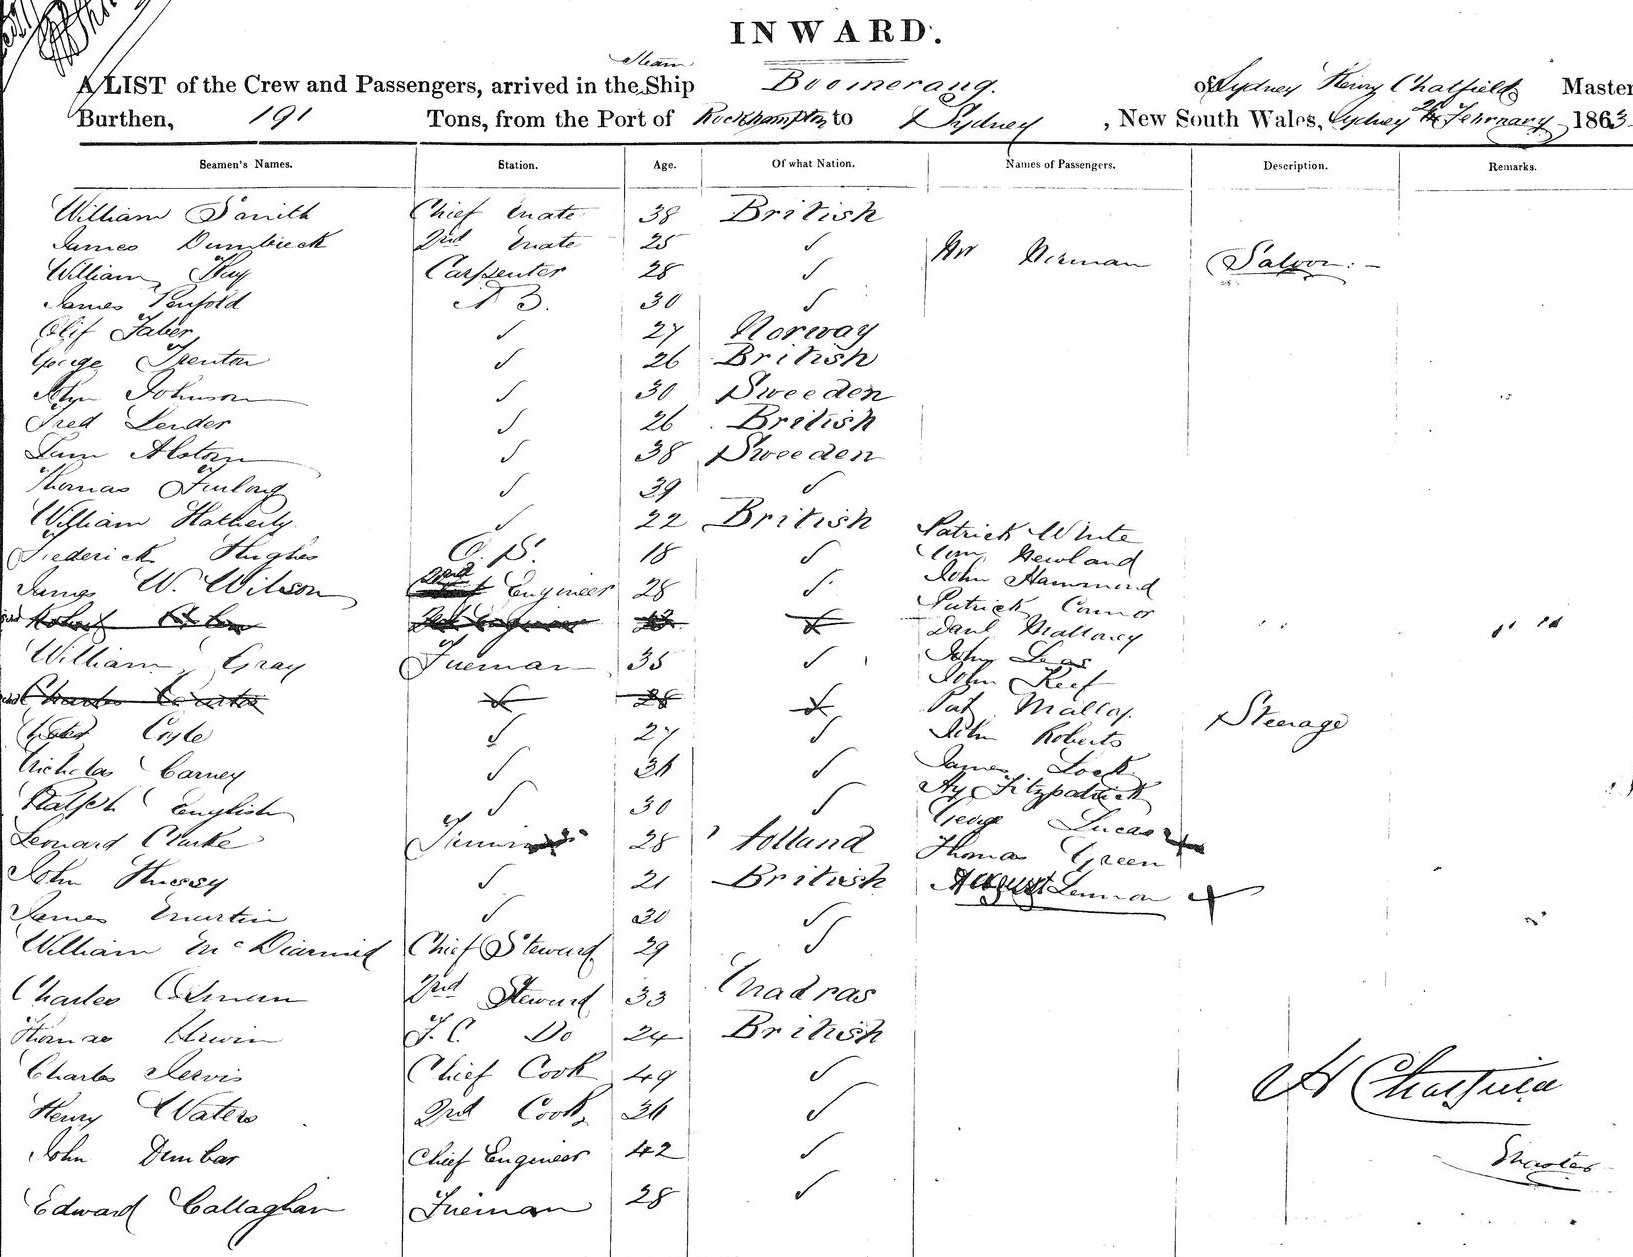 INWARD.
Steam
A LIST of the Crew and Passengers, arrived in the Ship Boomerang of Sydney Henry Chatfield Master
Burthen, 191 Tons, from the Port of Rockhampton to Sydney, New South Wales, Sydney February 1863
Seamen's Names. Station. Age. Of what Nation. Names of Passengers. Description. Remarks.
William Smith Chief Mate 38 British
James Dumbreck 2nd Mate 25 ✓
Mr Norman Saloon:-
William Hay Carpenter 28 ✓
James Penfold A B. 30 ✓
Olif Faber ✓ 27 Norway
George Trenton ✓ 26 British
Johnson ✓ 30 Sweeden
Fred Lender ✓ 26 British
Alstom ✓ 38 Sweeden
Thomas Furlong ✓ 39 ✓
William Hatherly ✓ 22 British
Patrick White
Frederick Hughes O. S. 18 ✓
Wm Newland
John Hammond
James W. Wilson 2nd Engineer 28 ✓
Patrick Connor
Danl Malloney
William Gray Fireman 35 ✓
John
John Reef
Pat Malloy
Steerage
Coyle ✓ 27 ✓
John Roberts
Nicholas Carney ✓ ✓
James Lock
Hy Fitzpatrick
Ralph English ✓ 30 ✓
George Lucas
Leonard Clarke Trimmer 28 Holland
Thomas Green
John Hussy ✓ 21 British
August Lennon
James Martin ✓ 30 ✓
William McDiarmid Chief Steward 29 ✓
Charles 2nd Steward 33 Madras
Thomas Urwin F.C. Do 24 British
Charles Jervis Chief Cook 49 ✓
Henry Waters 2nd Cook ✓
H Chatfield
Master
John Dunbar Chief Engineer 42 ✓
Edward Callaghan Fireman 28 ✓